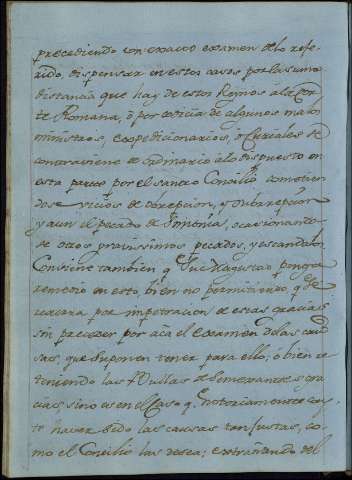 precediendo con exacto examen de lo refe-
rido, dispensar en estos casos por la suma
distancia que hay de estos Reynos a la cor-
te Romana, ò por codicia de algunos malos
ministros, expedicionarios, ò Curiales se
contraviene de ordinario a lo dispuesto en
esta parte por el santo Concilio cometien
dose vicios de obrepcion, y subrepcion
y aun el pecado de Simonia, ocacionando-
se otros gravissimos pecados, y escandalos
Conviene tambien q Su Magestad ponga
remedio en esto bien no permitiendo q se
recurra por impetracion de estas gracias
sin preceder por acà el examen de las cau
sas, que suponen tener para ello; ò bien re
teniendo las Bullas de semejantes gra
cias, sino es en el Caso q. notoriamente cons
te haver sido las causas tan justas, co-
mo el Concilio las desea; extrañando del